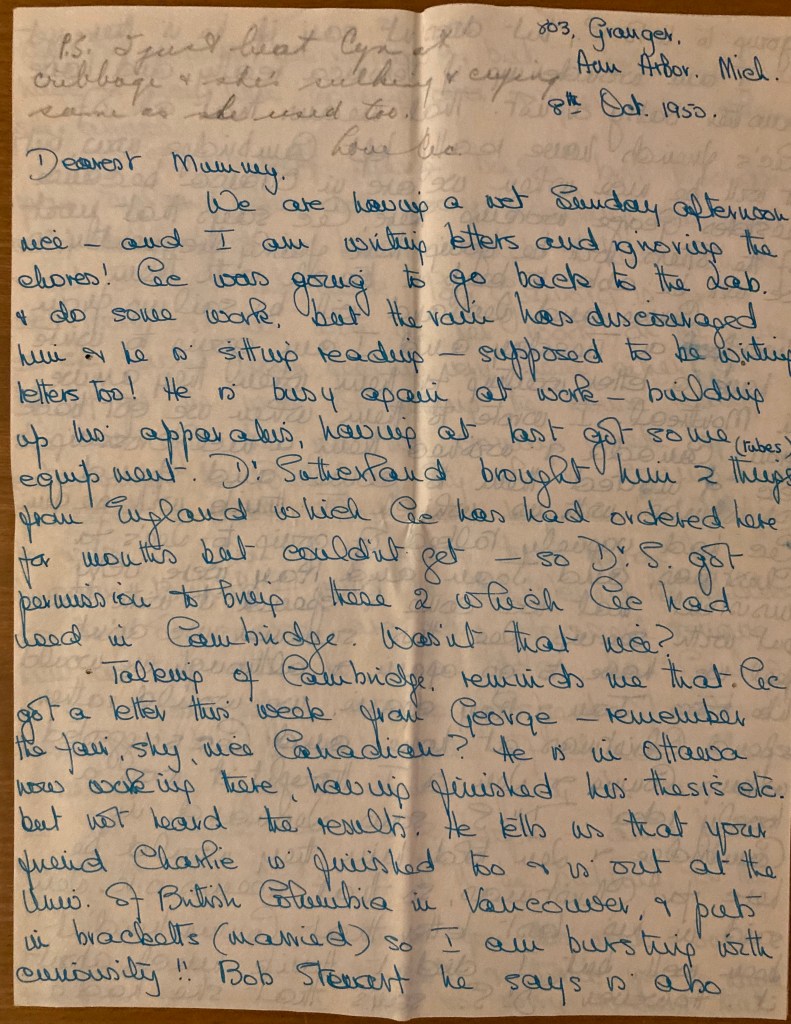 P.S. I just beat Cyn at
cribbage & she's sulking & crying
same as she used too.
Love Cec.
703, Granger.
Ann Arbor. Mich.
8th Oct. 1950.
Dearest Mummy.
We are having a wet Sunday afternoon
nice – and I am writing letters and ignoring the
chores! Cec was going to go back to the Lab.
& do some work, but the rain has discouraged
him & he is sitting reading – supposed to be writing
letters too! He is busy again at work – building
up his apparatus, having at last got some (tubes)
equipment. Dr. Sutherland brought him 2 things
from England which Cec has had ordered here
for months but couldn't get – so Dr. S. got
permission to bring these 2 which Cec had
used in Cambridge. Wasn't that nice?
Talking of Cambridge, reminds me that Cec
got a letter this week from George – remember
the fair, shy, nice Canadian? He is in Ottawa
now working there, having finished his thesis etc.
but not heard the results. He tells us that your
friend Charlie is finished too & is out at the
Univ. Of British Columbia in Vancouver, & puts
in bracketts (married) so I am bursting with
curiousity!! Bob Stewart he says is also